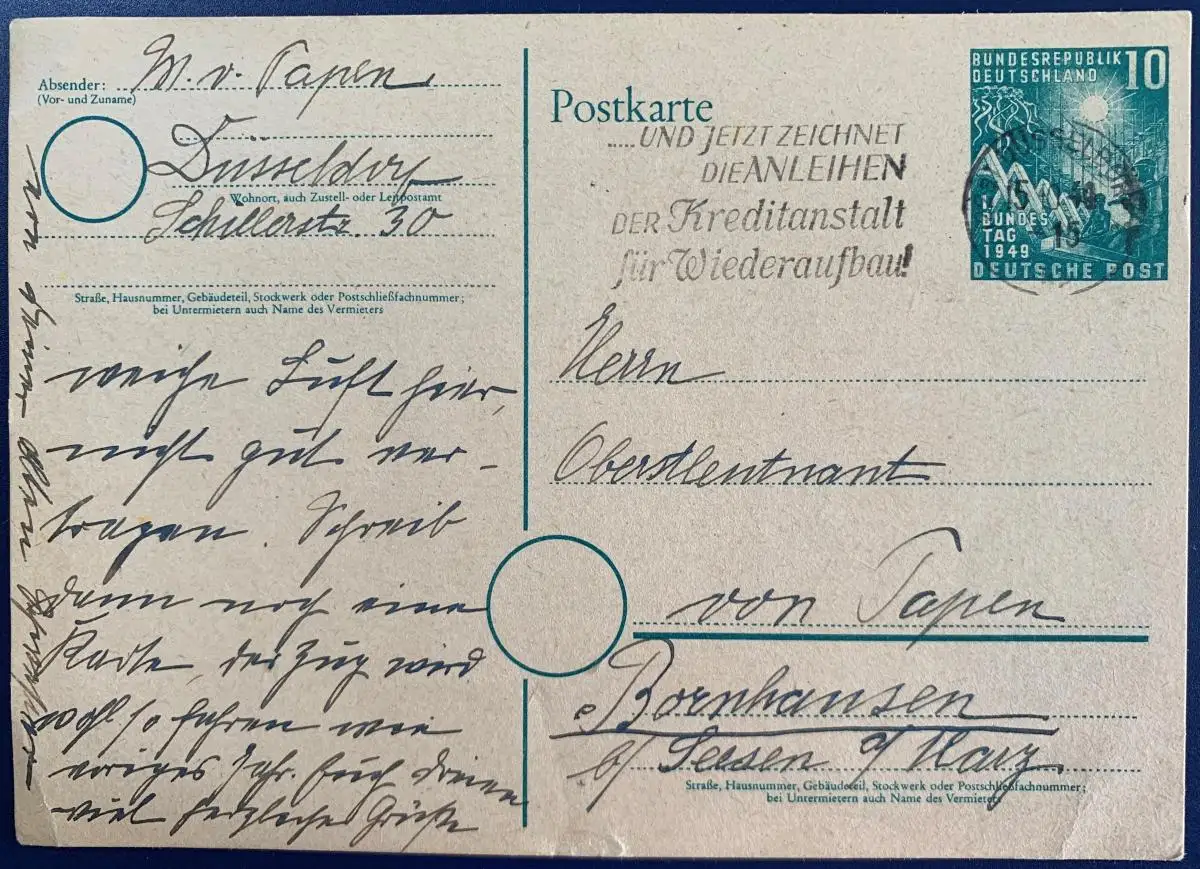 Absender: M. v. Papen
(Vor- und Zuname)
Düsseldorf
Wohnort, auch Zustell- oder Leitpostamt
Schillerstr. 30
Straße, Hausnummer, Gebäudeteil, Stockwerk oder Postschließfachnummer;
bei Untermietern auch Name des Vermieters
weiche Luft hier,
nicht gut ver-
tragen. Schreib
dann noch eine
Karte, der Zug wird
wohl so fahren wie
voriges Jahr. Euch dreien
viel herzliche Grüße
von Deiner alten
Postkarte
.....UND JETZT ZEICHNET
DIE ANLEIHEN
DER Kreditanstalt
für Wiederaufbau!
BUNDESREPUBLIK 10
DEUTSCHLAND
DÜSSELDORF
15
I.
BUNDES
TAG
1949
DEUTSCHE POST
Herrn
Oberstleutnant
von Papen
Bornhausen
b/ Seesen a/ Harz
Straße, Hausnummer, Gebäudeteil, Stockwerk oder Postschließfachnummer;
bei Untermietern auch Name des Vermieters